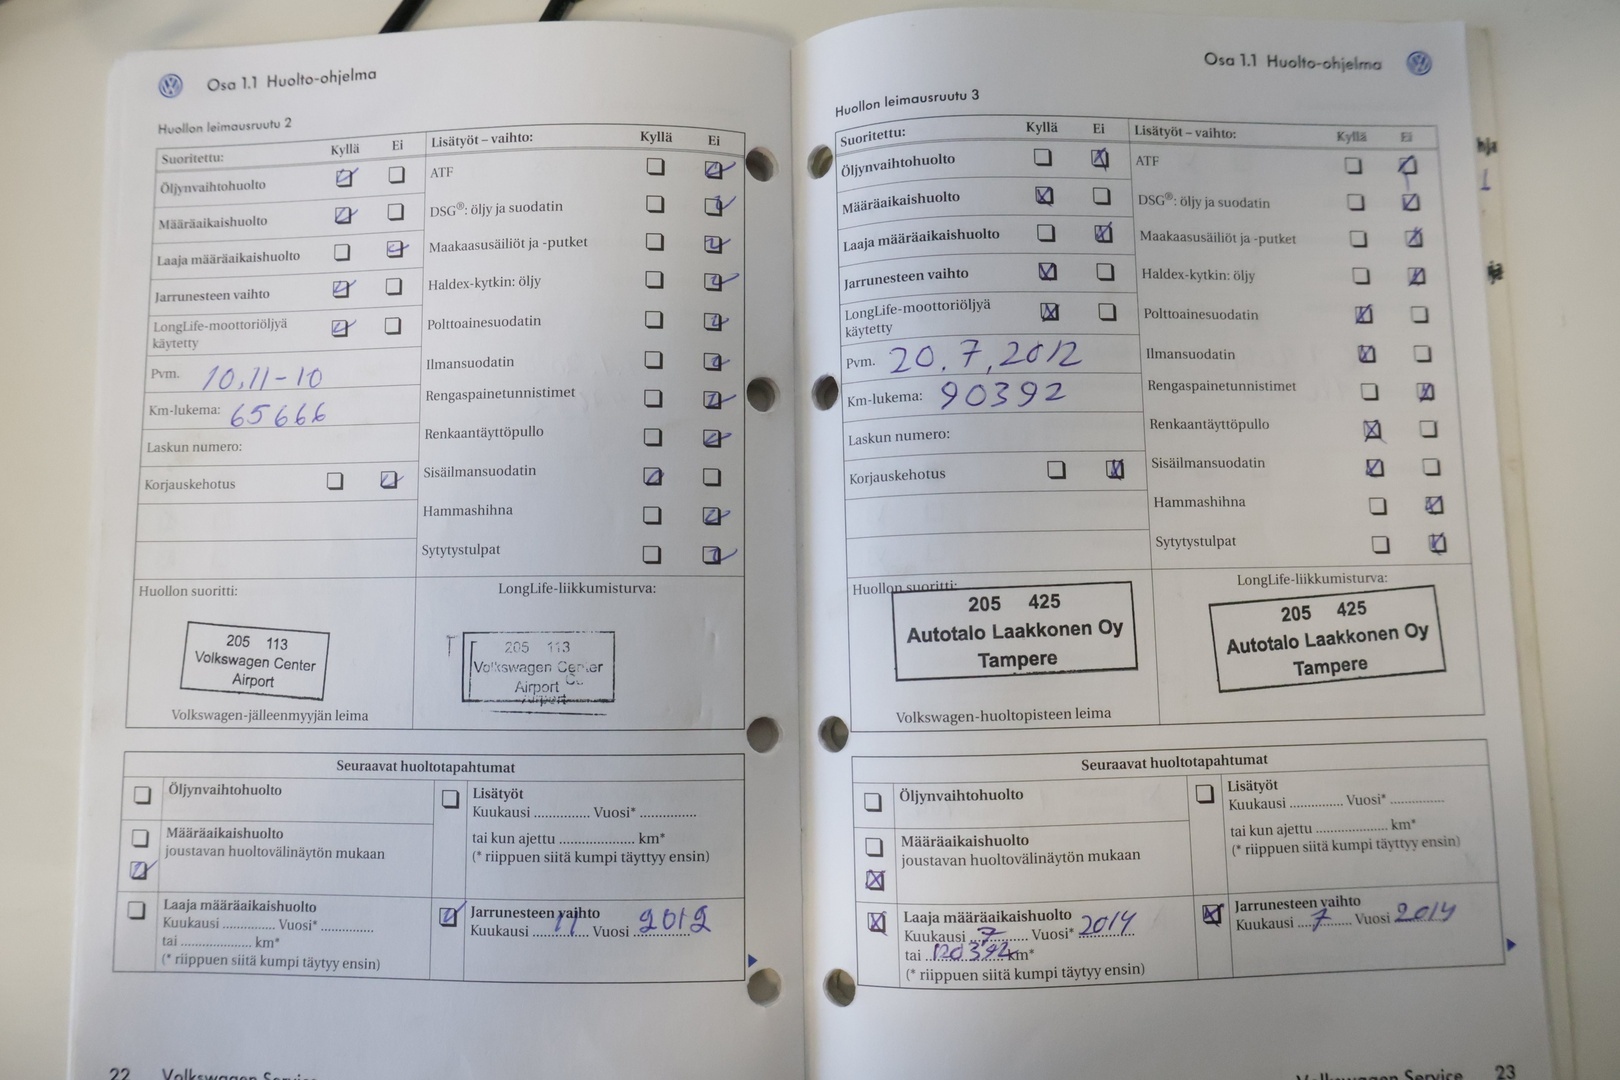 Osa 1.1 Huolto-ohjelma
Huollon leimausruutu 2
Suoritettu: Kyllä Ei
Öljynvaihtohuolto
Määräaikaishuolto
Laaja määräaikaishuolto
Jarrunesteen vaihto
LongLife-moottoriöljyä
käytetty
Pvm. 10,11-10
Km-lukema: 65666
Laskun numero:
Korjauskehotus
Lisätyöt – vaihto: Kyllä Ei
ATF
DSG®: öljy ja suodatin
Maakaasusäiliöt ja -putket
Haldex-kytkin: öljy
Polttoainesuodatin
Ilmansuodatin
Rengaspainetunnistimet
Renkaantäyttöpullo
Sisäilmansuodatin
Hammashihna
Sytytystulpat
Huollon suoritti:
205 113
Volkswagen Center
Airport
Volkswagen-jälleenmyyjän leima
LongLife-liikkumisturva:
205 113
Volkswagen Center
Airport
Seuraavat huoltotapahtumat
Öljynvaihtohuolto
Määräaikaishuolto
joustavan huoltovälinäytön mukaan
Laaja määräaikaishuolto
Kuukausi .............. Vuosi* ..............
tai ................... km*
(* riippuen siitä kumpi täytyy ensin)
Lisätyöt
Kuukausi ............... Vuosi* ...............
tai kun ajettu .................... km*
(* riippuen siitä kumpi täyttyy ensin)
Jarrunesteen vaihto
Kuukausi 11 Vuosi 2012
22 Volkswagen Service
Osa 1.1 Huolto-ohjelma
Huollon leimausruutu 3
Suoritettu: Kyllä Ei
Öljynvaihtohuolto
Määräaikaishuolto
Laaja määräaikaishuolto
Jarrunesteen vaihto
LongLife-moottoriöljyä
käytetty
Pvm. 20.7,2012
Km-lukema: 90392
Laskun numero:
Korjauskehotus
Lisätyöt – vaihto: Kyllä Ei
ATF
DSG®: öljy ja suodatin
Maakaasusäiliöt ja -putket
Haldex-kytkin: öljy
Polttoainesuodatin
Ilmansuodatin
Rengaspainetunnistimet
Renkaantäyttöpullo
Sisäilmansuodatin
Hammashihna
Sytytystulpat
Huollon suoritti:
205 425
Autotalo Laakkonen Oy
Tampere
Volkswagen-huoltopisteen leima
LongLife-liikkumisturva:
205 425
Autotalo Laakkonen Oy
Tampere
Seuraavat huoltotapahtumat
Öljynvaihtohuolto
Määräaikaishuolto
joustavan huoltovälinäytön mukaan
Laaja määräaikaishuolto
Kuukausi 7 Vuosi* 2014
tai 120392 km*
(* riippuen siitä kumpi täytyy ensin)
Lisätyöt
Kuukausi .............. Vuosi* ..............
tai kun ajettu .................... km*
(* riippuen siitä kumpi täyttyy ensin)
Jarrunesteen vaihto
Kuukausi 7 Vuosi 2014
Volkswagen Service 23